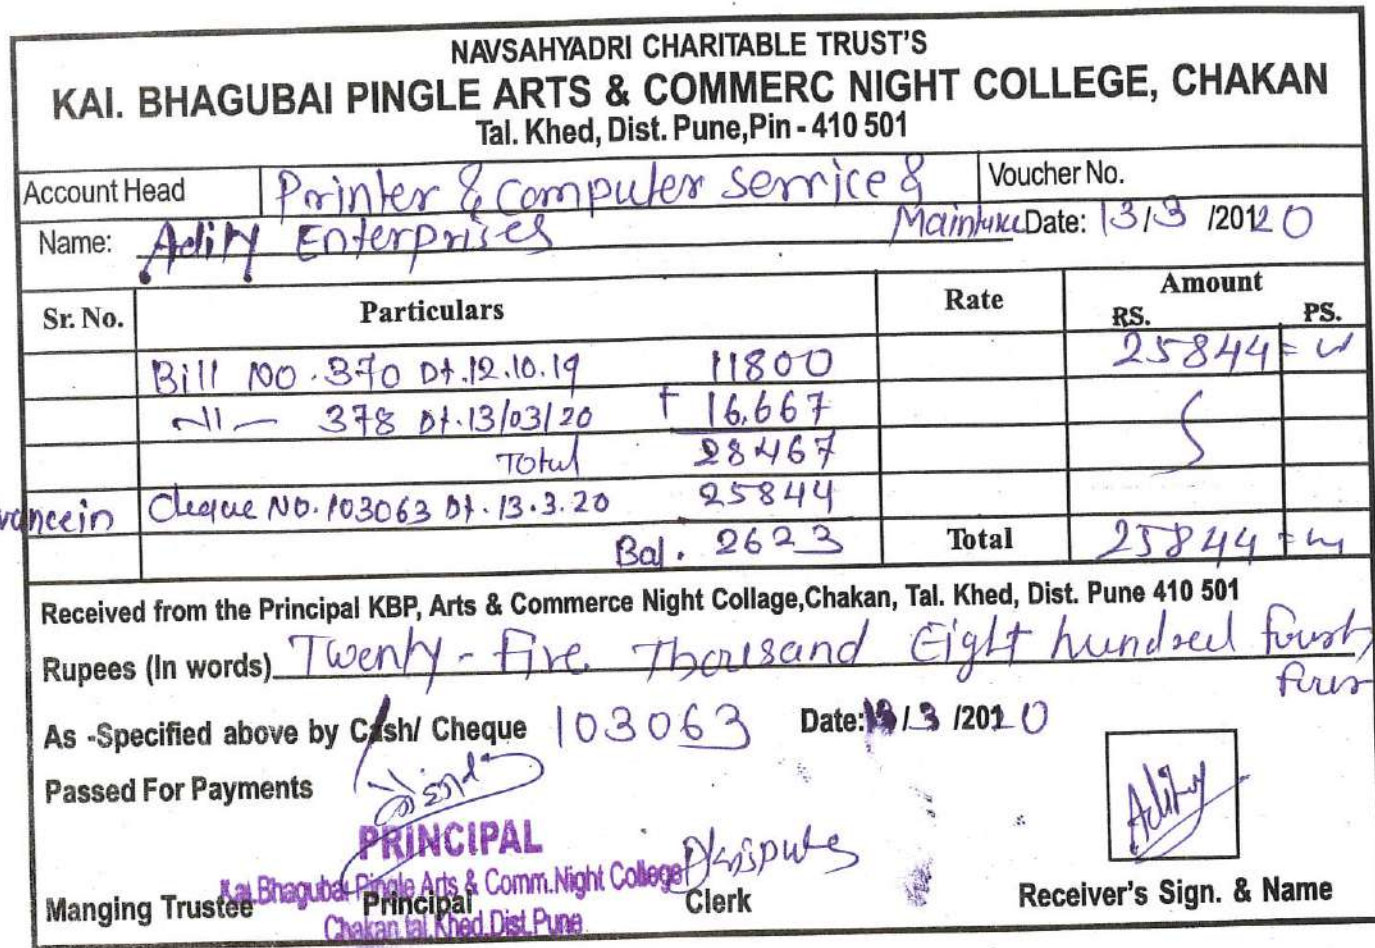 NAVSAHYADRI CHARITABLE TRUST'S
KAI. BHAGUBAI PINGLE ARTS & COMMERC NIGHT COLLEGE, CHAKAN
Tal. Khed, Dist. Pune,Pin - 410 501
Account Head Printer & Computer Service & Voucher No.
Name: Adity Enterprises Date: 13/3/2020
Sr. No. Particulars Rate Amount
RS. PS.
Bill NO. 370 Dt.12.10.19 11800 25844=
-11- 378 Dt.13/03/20 + 16,667
Total 28467
Cheque NO. 103063 Dt. 13.3.20 25844
Bal. 2623 Total 25844
Received from the Principal KBP, Arts & Commerce Night Collage,Chakan, Tal. Khed, Dist. Pune 410 501
Rupees (In words) Twenty-Five Thousand Eight hundred
As -Specified above by Cash/ Cheque 103063 Date: 13/3/2020
Passed For Payments
PRINCIPAL
Kai.Bhagubai Pingle Arts & Comm.Night College
Chakan,tal.Khed.Dist.Pune
Adity
Manging Trustee Principal Clerk Receiver's Sign. & Name